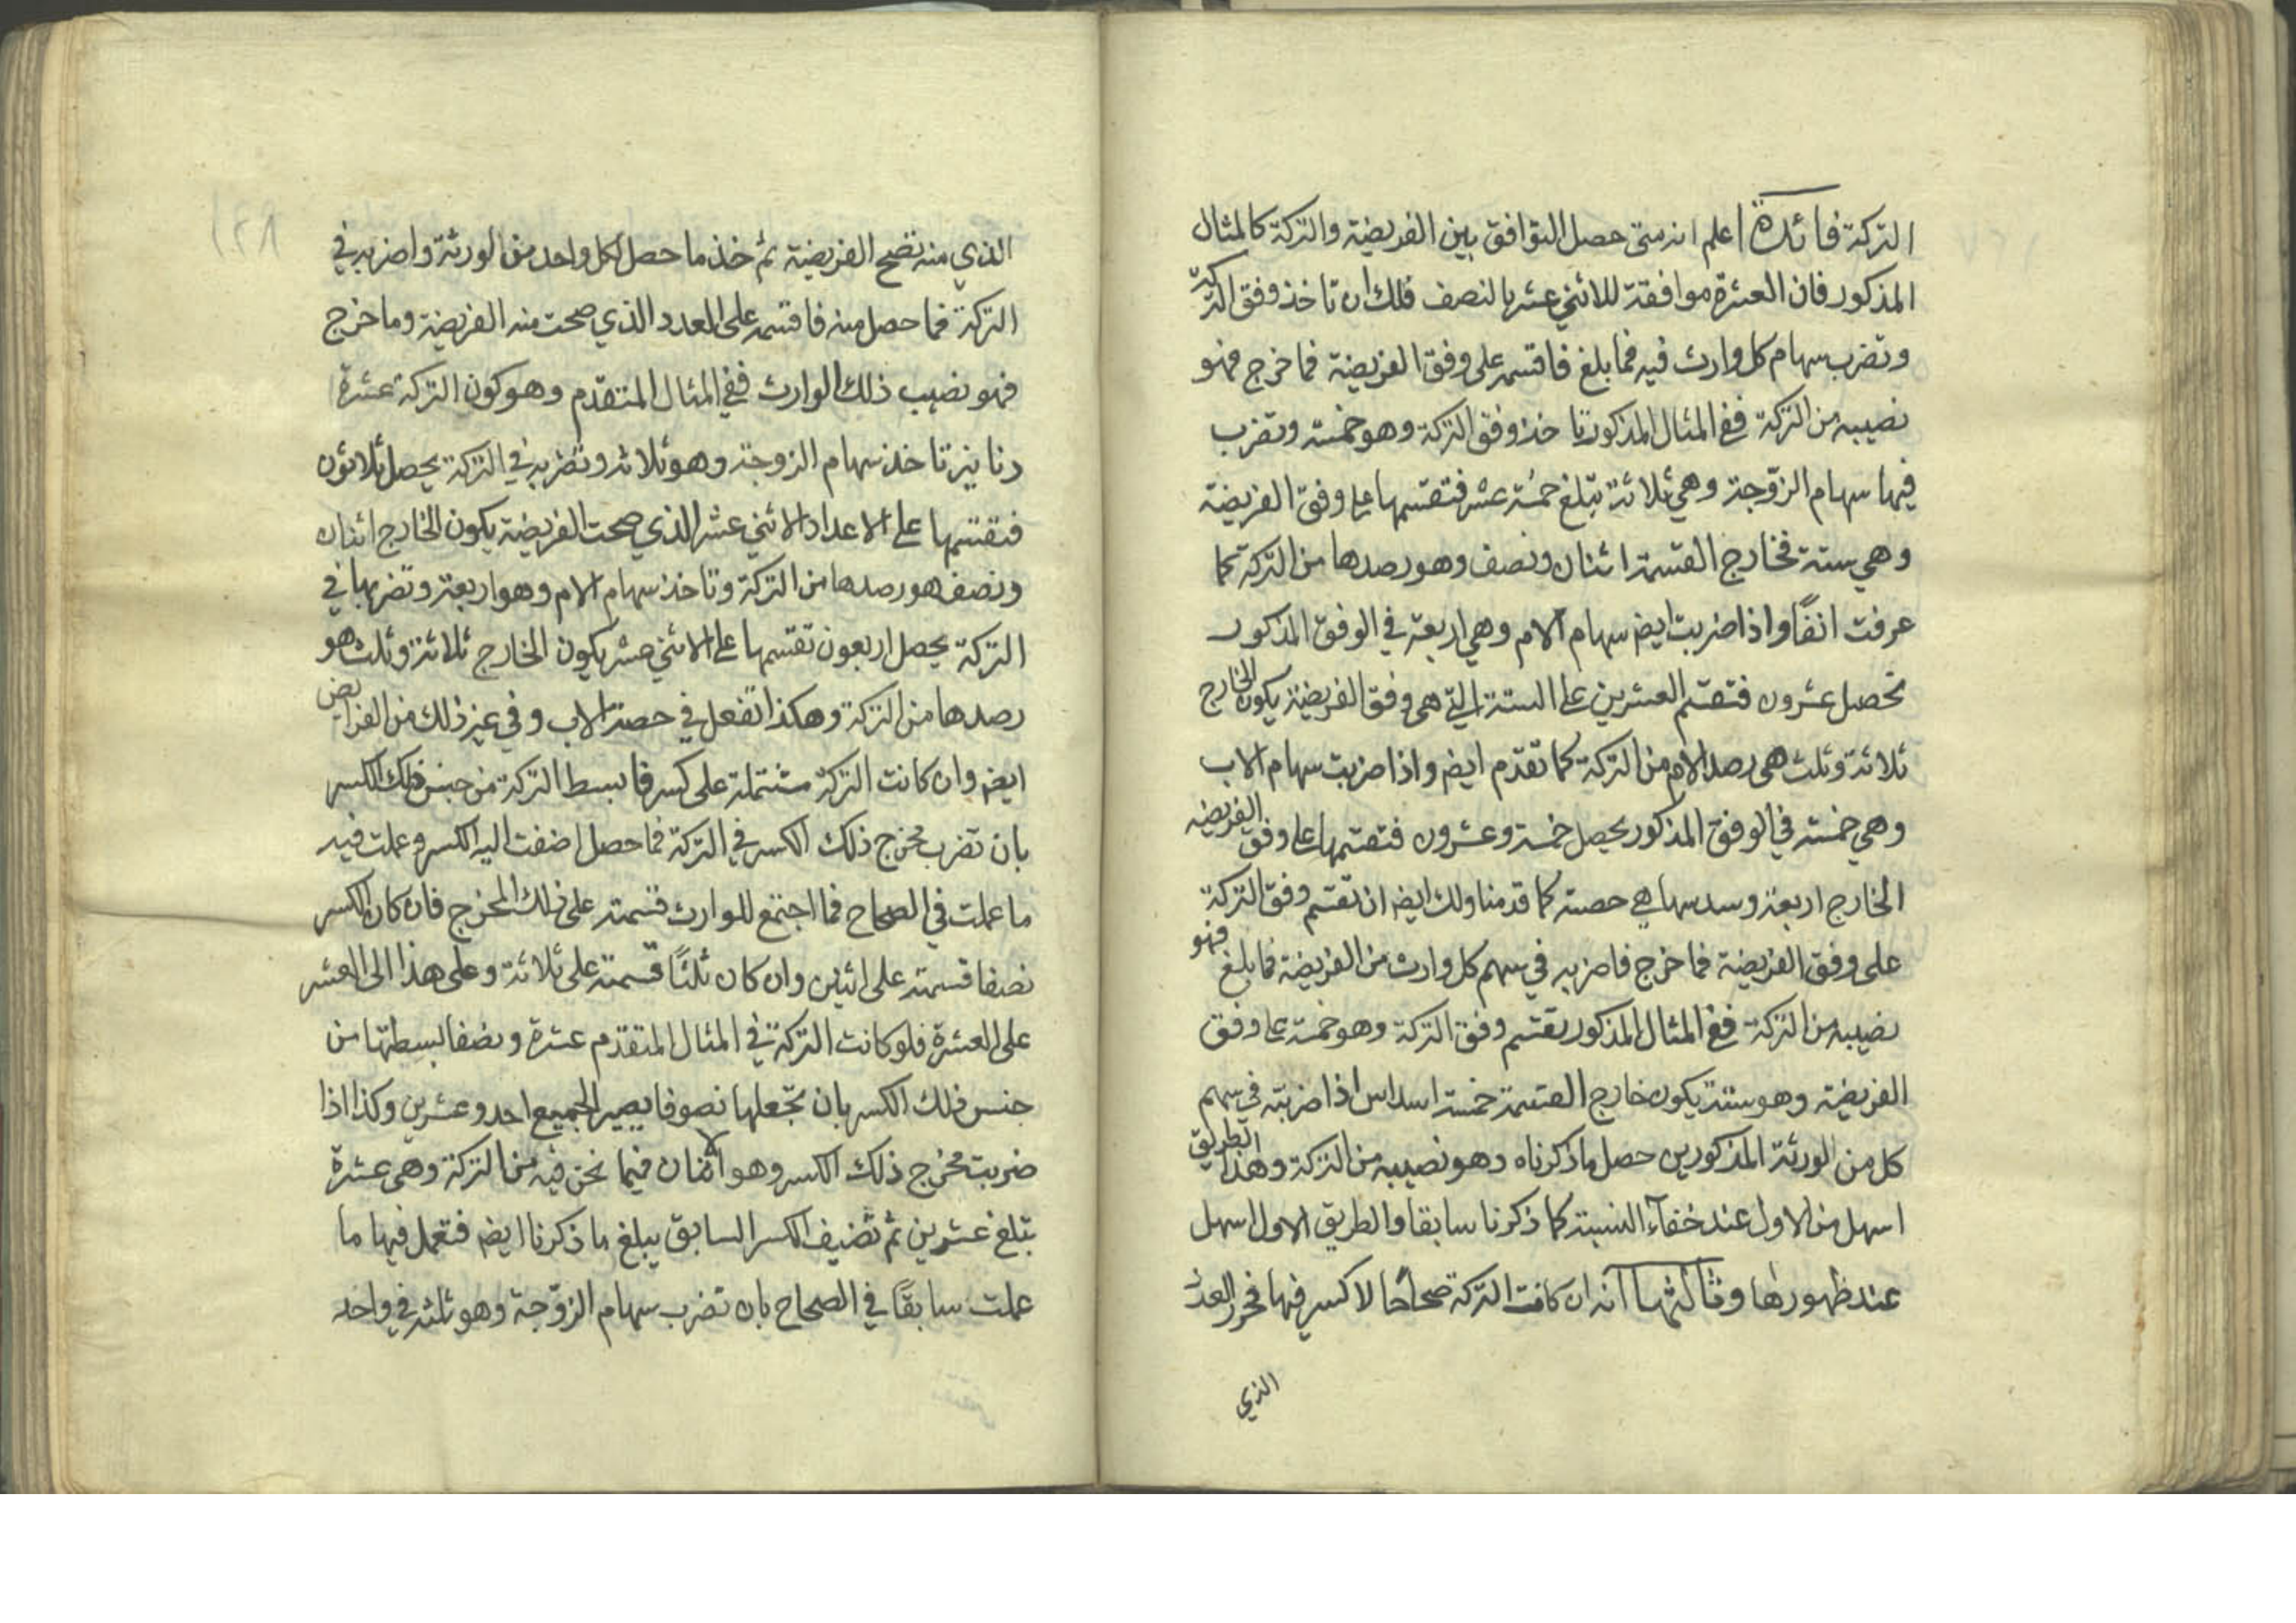 التركة فائدة اعلم انه متى حصل التوافق بين الفريضة والتركة كالمثال
المذكور فان العشرة موافقة للاثني عشر بالنصف فلك ان تاخذ وفق التركة
وتضرب سهام كل وارث فيه فما بلغ فاقتسمه على وفق الفريضة فما خرج فهو
نصيبه من التركة ففي المثال المذكور تاخذ وفق التركة وهو خمسة وتضرب
فيها سهام الزوجة وهي ثلاثة تبلغ خمسة عشر فتقتسمها على وفق الفريضة
وهي ستة فخارج القسمة اثنان ونصف وهو رصدها من التركة كما
عرفت انفًا واذا ضربت ايضا سهام الام وهي اربعة في الوفق المذكور
تحصل عشرون فتقتسم العشرين على الستة التي هي وفق الفريضة يكون الخارج
ثلاثة وثلث هي رصد الام من التركة كما تقدم ايضا واذا ضربت سهام الاب
وهي خمسة في الوفق المذكور يحصل خمسة وعشرون فتقتسمها على وفق الفريضه
الخارج اربعة وسدسها هي حصته كما قدمنا ولك ايضا ان تقتسم وفق التركة
على وفق الفريضة فما خرج فاضربه في سهم كل وارث من الفريضة فما بلغ فهو
نصيبه من التركة ففي المثال المذكور تقتسم وفق التركة وهو خمسة على وفق
الفريضة وهو ستة يكون خارج القسمة خمسة اسداس اذا ضربته في سهم
كل من الورثة المذكورين حصل ما ذكرناه وهو نصيبه من التركة وهذا الطريق
اسهل من الاول عند خفآء النسبة كما ذكرنا سابقا والطريق الاول اسهل
عند ظهورها وثالثها انه ان كانت التركة صحاحًا لا كسر فيها فحرر العدد
الذي
الذي منه تصح الفريضة ثم خذ ما حصل لكل واحد من الورثة واضربه في
التركة فما حصل منه فاقتسمه على العدد الذي صحت منه الفريضة وما خرج
فهو نصيب ذلك الوارث ففي المثال المتقدم وهو كون التركة عشرة
دنانير تاخذ سهام الزوجة وهو ثلاثة وتضربه في التركة يحصل ثلاثون
فتقتسمها على الاعداد الاثني عشر الذي صحت الفريضة يكون الخارج اثنان
ونصف هو رصدها من التركة وتاخذ سهام الام وهو اربعة وتضربها في
التركة يحصل اربعون تقتسمها على الاثني عشر يكون الخارج ثلاثة وثلث هو
رصدها من التركة وهكذا تفعل في حصة الاب وفي غير ذلك من الفرايض
ايضا وان كانت التركة مشتملة على كسر فابسط التركة من جنس ذلك الكسر
بان تضرب مخرج ذلك الكسر في التركة فما حصل اضفت اليه الكسر وعملت فيه
ما عملت في الصحاح فما اجتمع للوارث قسمته على ذلك المخرج فان كان الكسر
نصفا قسمته على اثنين وان كان ثلثًا قسمته على ثلاثة وعلى هذا الى العشر
على العشرة فلو كانت التركة في المثال المتقدم عشرة ونصفا بسطتها من
جنس ذلك الكسر بان تجعلها نصوفا يصير الجميع احد وعشرين وكذا اذا
ضربت مخرج ذلك الكسر وهو الاثنان فيما نحن فيه من التركة وهي عشرة
تبلغ عشرين ثم تضيف الكسر السابق يبلغ ما ذكرنا ايضا فتعمل فيها ما
عملت سابقًا في الصحاح بان تضرب سهام الزوجة وهو ثلثه في واحد